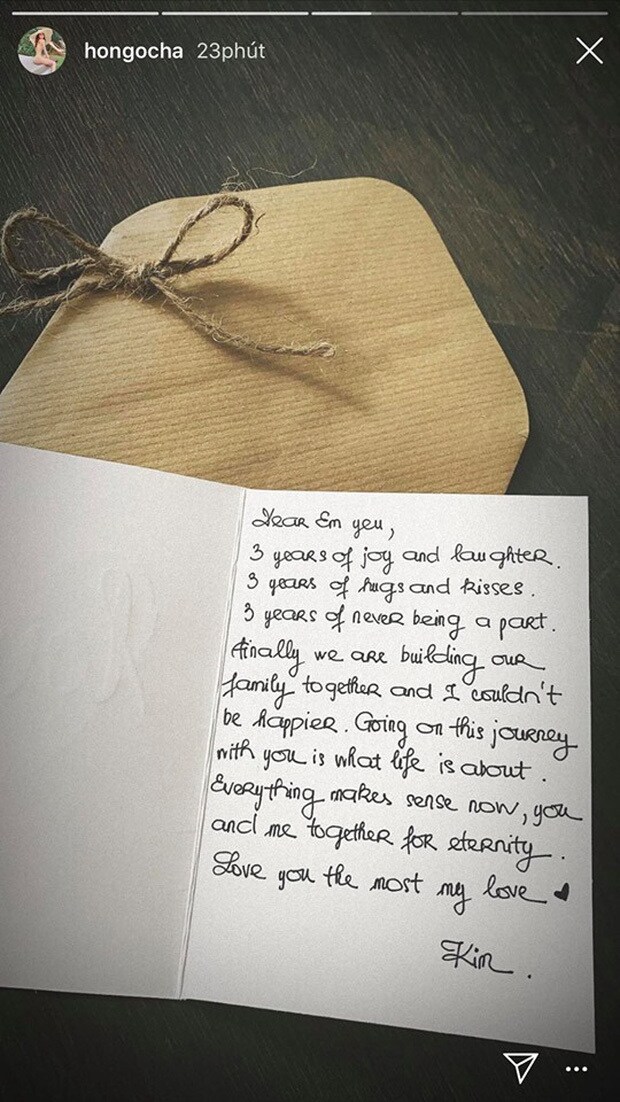 hongocha 23phút
Dear Em yeu,
3 years of joy and laughter.
3 years of hugs and kisses.
3 years of never being a part.
Finally we are building our
family together and I couldn't
be happier. Going on this journey
with you is what life is about.
Everything makes sense now, you
and me together for eternity.
Love you the most my love ♥
Kim.